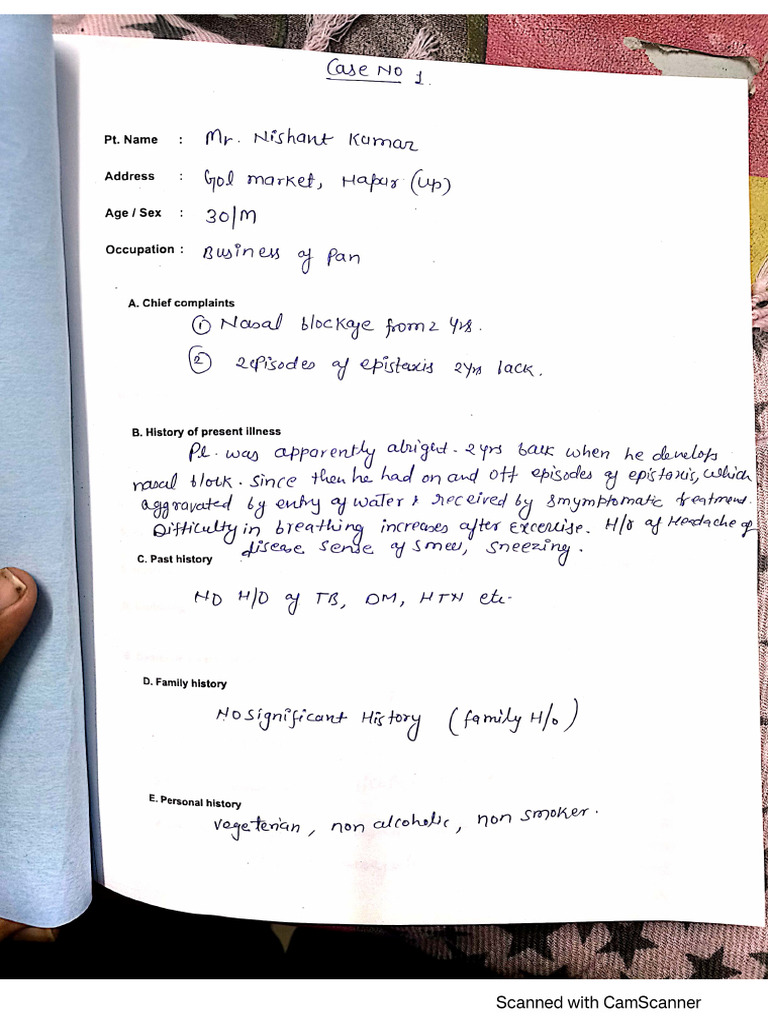 Case No 1.
Pt. Name : Mr. Nishant Kumar
Address : Gol market, Hapur (Up)
Age / Sex : 30/M
Occupation : Business of Pan
A. Chief complaints
① Nasal blockage from 2 Yrs.
② 2 episodes of epistaxis 2yrs back.
B. History of present illness
Pt. was apparently alright. 2yrs back when he develops
nasal block. Since then he had on and off episodes of epistaxis, which
aggravated by entry of water & received by smymptomatic treatment.
Difficulty in breathing increases after Excercise. H/o of Headache of
disease sense of smell, sneezing.
C. Past history
NO H/O of TB, DM, HTN etc.
D. Family history
No significant History (family H/o)
E. Personal history
vegeterian, non alcoholic, non smoker.
Scanned with CamScanner